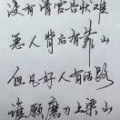 没有清官告状难
恶人背后有靠山
但凡好人有活路
谁愿磨刀上梁山